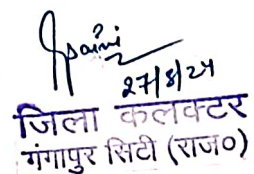 27/8/24
जिला कलक्टर
गंगापुर सिटी (राज०)